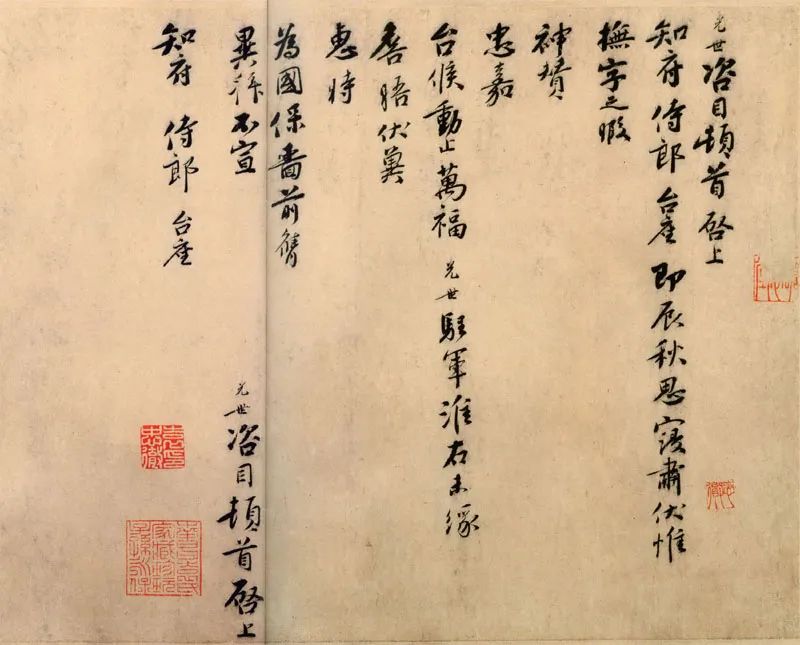 光世咨目頓首啓上
知府侍郎台座即辰秋思寖肅伏惟
撫字之暇
神賛
忠嘉
台候動止萬福光世駐軍淮右未緣
參晤伏冀
惠時
為國保嗇前膺
異拜不宣
知府侍郎台座
光世咨目頓首啓上